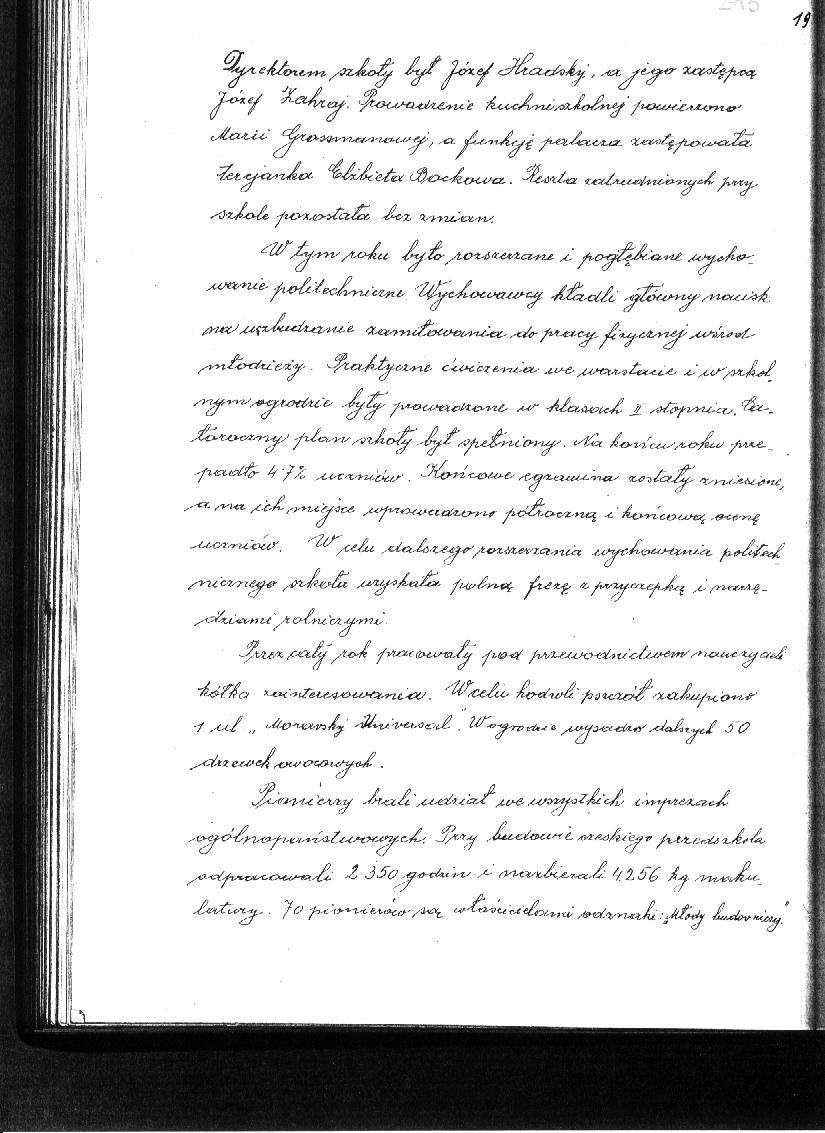 19
Dyrektorem szkoły był Józef Hradský, a jego zastępcą
Józef Zahraj. Prowadzenie kuchni szkolnej powierzono
Marii Grossmanowej, a funkcję palacza zastępowała
tercjanka Elżbieta Bockowa. Reszta zatrudnionych przy
szkole pozostała bez zmian.
W tym roku było rozszerzane i pogłębiane wycho-
wanie politechniczne. Wychowawcy kładli główny nacisk
na wzbudzanie zamiłowania do pracy fizycznej wśród
młodzieży. Praktyczne ćwiczenia we warstacie i w szkol-
nym ogrodzie były prowadzone w klasach II stopnia. Ca-
łoroczny plan szkoły był spełniony. Na końcu roku prze-
padło 4·7% uczniów. Końcowe egzamina zostały zniesione,
a na ich miejsce wprowadzono półroczną i końcową ocenę
uczniów. W celu dalszego rozszerzania wychowania politech-
nicznego szkoła uzyskała polną frezę z przyczepką i narzę-
dziami rolniczymi.
Przez cały rok pracowały pod przewodnictwem nauczycieli
kółka zainteresowania. W celu hodowli pszczół zakupiono
1 ul „Moravský Universal". W ogrodzie wysadzo dalszych 50
drzewek owocowych.
Pionierzy brali udział we wszystkich imprezach
ogólnopaństwowych. Przy budowie czeskiego przedszkola
odpracowali 2 350 godzin i nazbierali 4256 kg maku-
latury. 70 pionierów są właścicielami odznaki: „Młody budowniczy."